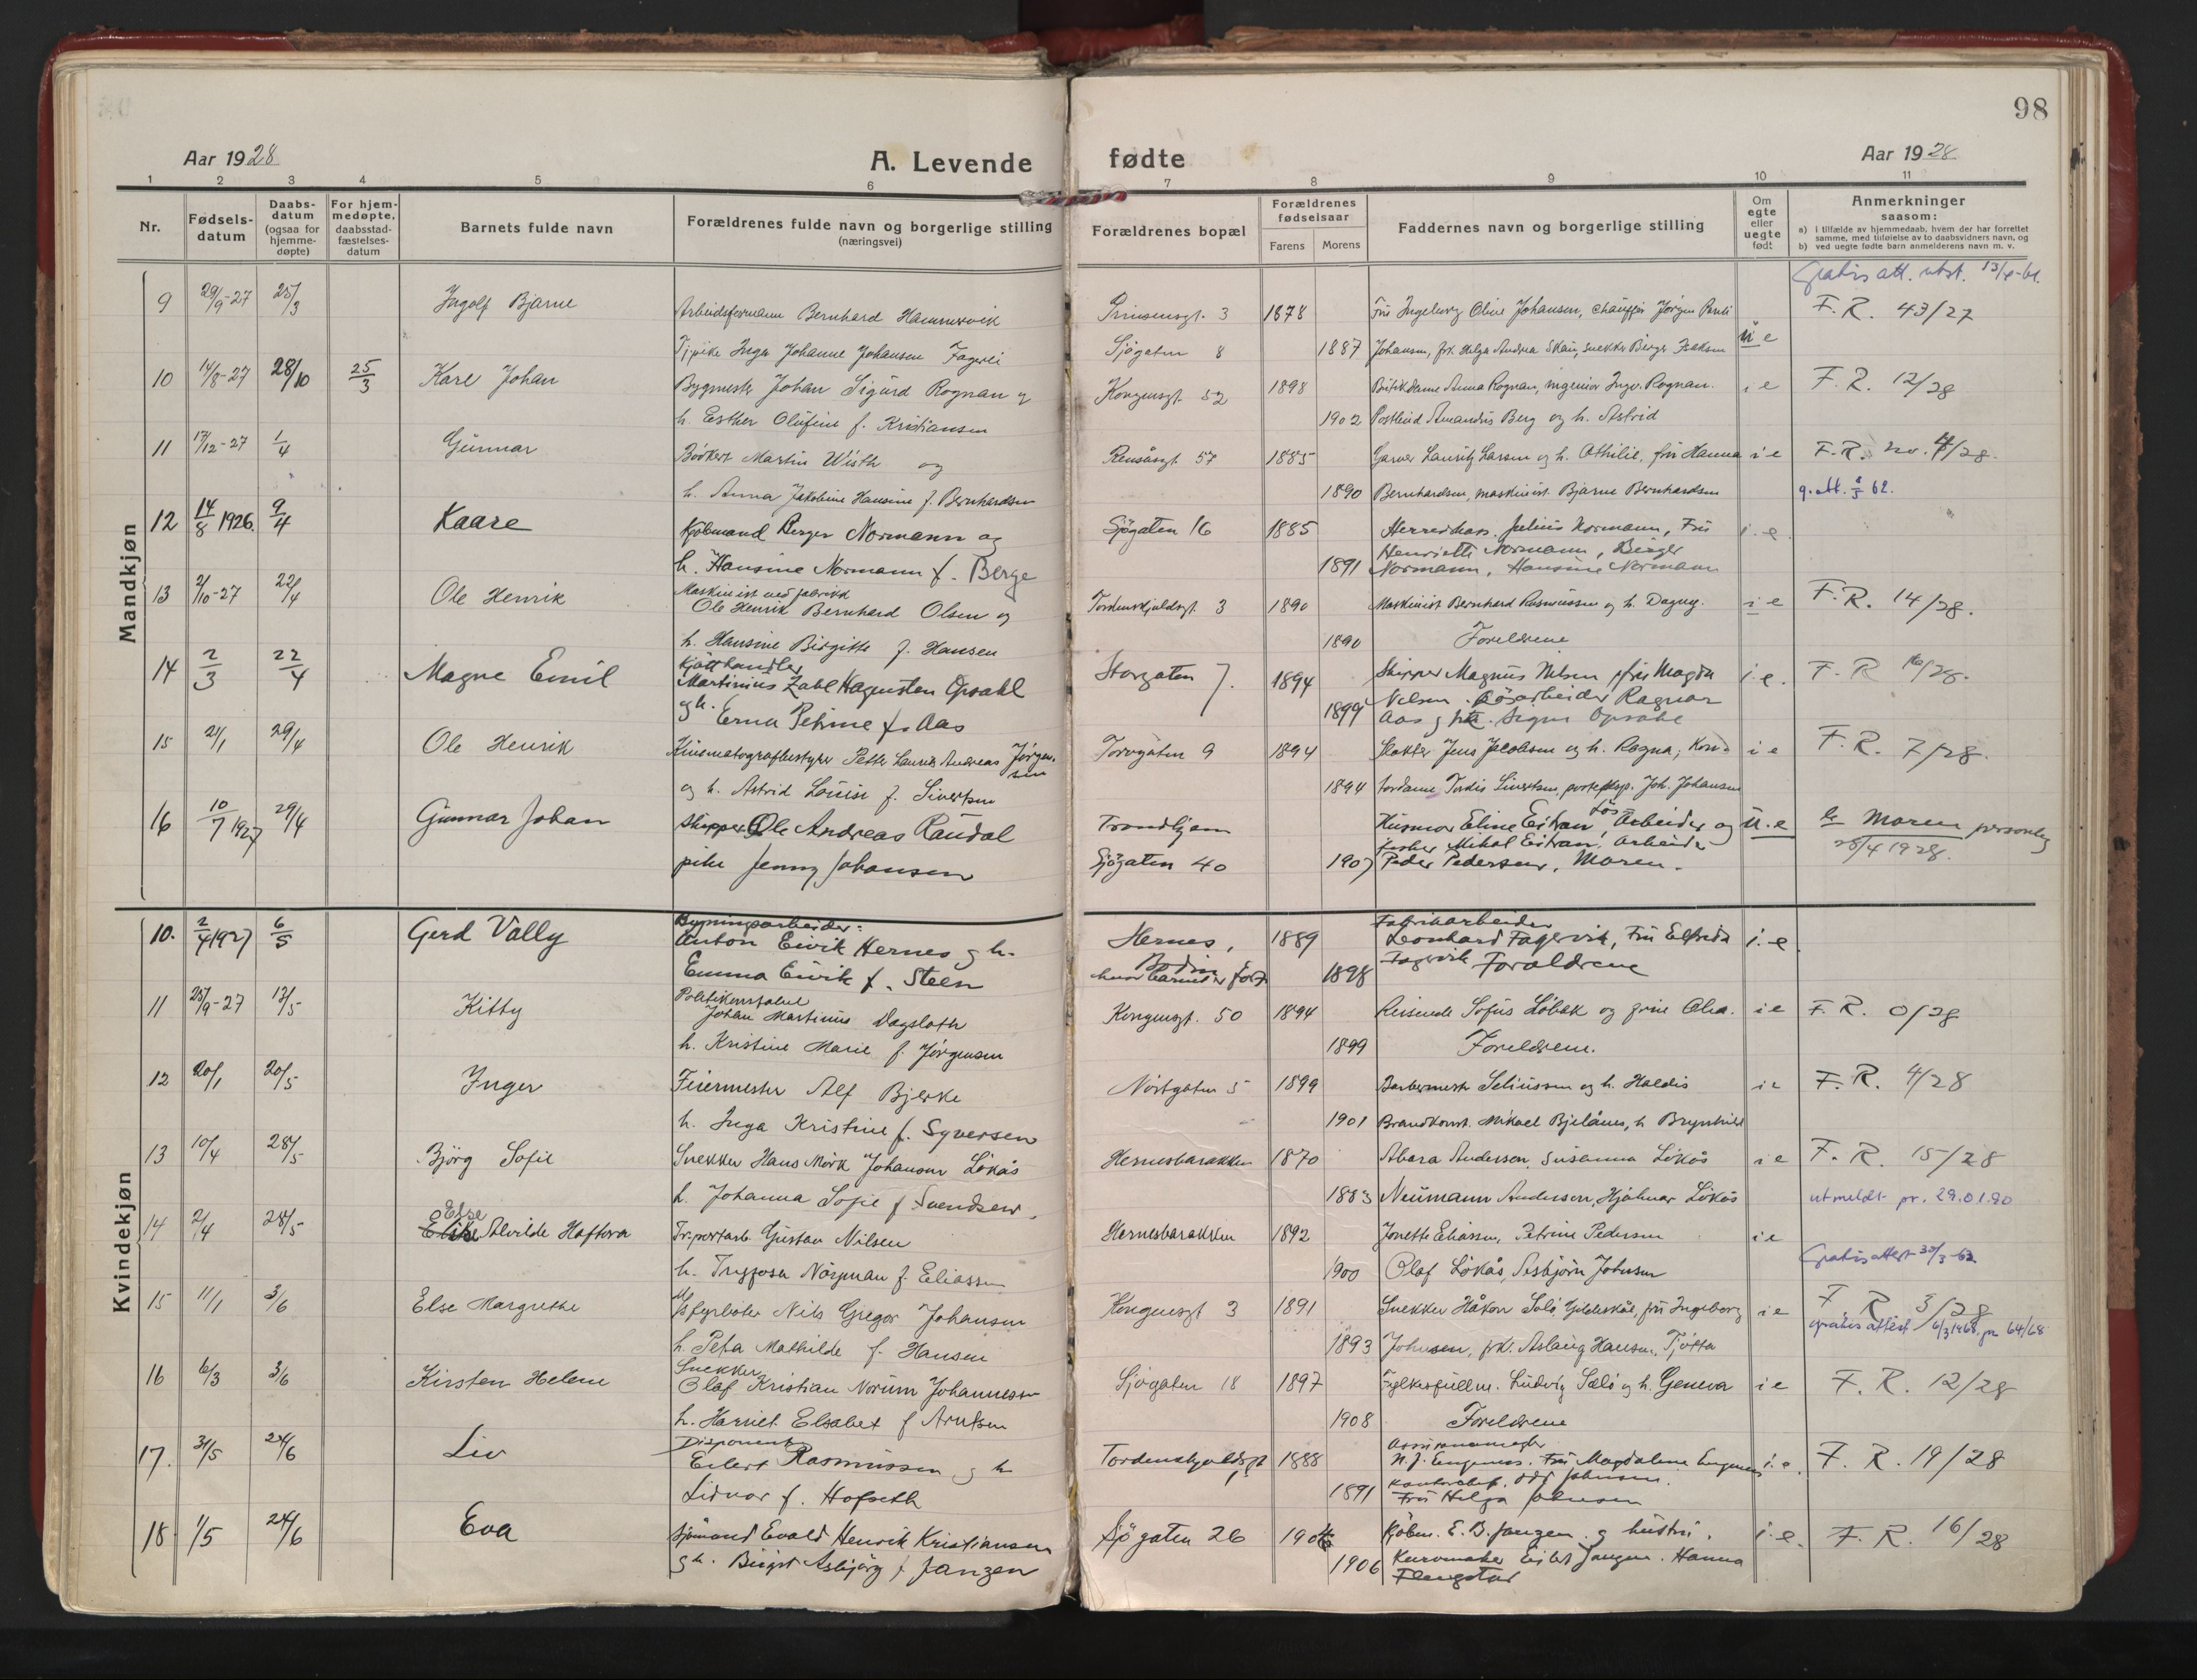 98
Aar 1928
A. Levende fødte
Aar 1928
1 2 3 4 5 6 7 8 9 10 11
Nr.
Fødsels-
datum
Daabs-
datum
(ogsaa for
hjemme-
døpte)
For hjem-
medøpte,
daabsstad-
fæstelses-
datum
Barnets fulde navn
Forældrenes fulde navn og borgerlige stilling
(næringsvei)
Forældrenes bopæl
Forældrenes
fødselsaar
Farens Morens
Faddernes navn og borgerlige stilling
Om
egte
eller
uegte
født
Anmerkninger
saasom:
a) i tilfælde av hjemmedaab, hvem der har forrettet
samme, med tilføielse av to daabsvidners navn, og
b) ved uegte fødte barn anmelderens navn m. v.
Mandkjøn
Gratis att. utst.
9 29/9-27 25/3 Ingolf Bjarne Arbeidsformann Bernhard Hammervik Prinsensgt. 3 1878 Fru Ingeborg Oline Johansen, chauffør Jørgen F.R. 43/27
Inga Johanne Johansen Fagerli Sjøgaten 8 1887 Johansen, frk. Helga Andrea Skau, snekker Birger Isaksen u e
10 14/8-27 28/10 25/3 Kare Johan Bygmester Johan Sigurd Rognan og Kongensgt. 52 1898 Anna Rognan, ingeniør Ingv. Rognan. i e F.R. 12/28
h. Esther Olufine f. Kristiansen 1902 Amandus Berg og h. Astrid
11 17/12-27 1/4 Gunnar Bødker Martin Wisth og Rensåsgt. 57 1885 Garver Lauritz Larsen og h. Othilie, fru Hanna i e F.R. no. 4/28.
h. Anna Jakobine Hansine f. Bernhardsen 1890 Bernhardsen, maskinist Bjarne Bernhardsen g. att. 62.
12 14/8 1926. 9/4 Kaare Kjøbmand Berger Normann og Sjøgaten 16 1885 Herredskass. Julius Normann, Fru i.e.
h. Hansine Normann f. Berge 1891 Henriette Normann, Birger
Normann, Hansine Normann
13 2/10-27 22/4 Ole Henrik Maskinist ved fabrikk
Ole Henrik Bernhard Olsen og Tordenskjoldsgt. 3 1890 Maskinist Bernhard Rasmussen og h. Dagny. i e F.R. 14/28.
h. Hansine Birgitte f. Hansen 1890 Foreldrene
14 2/3 22/4 Magne Emil Kjøtthandler
Martinius Zahl Hagensten Opsahl Storgaten 7. 1894 Skipper Magnus Nilsen, fru Magda i.e. F.R 16/28.
og h. Erna Petrine f. Aas 1899 Nilsen. Løsarbeider Ragnar
Aas og frk. Signe Opsahl
15 2/1 29/4 Ole Henrik Kinematografbestyrer Petter Laurits Andreas Jørgensen Torvgaten 9 1894 Slakter Jens Jacobsen og h. Ragna, Kon- i e F.R. 7/28.
og h. Astrid Louise f. Sivertsen 1894 tordame Tordis Sivertsen, Joh. Johansen
16 10/7 1927 29/4 Gunnar Johan Skipper Ole Andreas Raudal Trondhjem Husmor Eline Eitran, Løsarbeider og u.e Moren personlig
pike Jenny Johansen Sjøgaten 40 1907 fisker Mikal Eitran, arbeider 28/4 1928.
Peder Pedersen, Moren.
Kvindekjøn
10. 2/4 1927 6/5 Gerd Vally Bygningsarbeider:
Anton Eivik Hernes og h. Hernes, Bodin 1889 Fabrikarbeider
Leonhard Fagervik, Fru Elfreda i.e.
Emma Eivik f. Steen hvor barnet er født 1898 Fagervik Foraldrene
11 25/9-27 13/5 Kitty Politikonstabel
Johan Martinus Dagsloth Kongensgt. 50 1894 Reisende Sofus Løbak og frue Olea. i e F.R. 0/28
h. Kristine Marie f. Jørgensen 1899 Foreldrene.
12 20/1 20/5 Inger Feiermester Alf Bjerke Nørtgaten 5 1899 Barbermestr Seliussen og h. Haldis i e F.R. 4/28
h. Inga Kristine f. Syversen 1901 Brandkonst. Mikael Bjelånes, h Brynhild
13 10/4 28/5 Bjørg Sofie Snekker Hans Mörk Johansen Lökås Hernesbarakken 1870 Abara Andersen, Susanna Lökås i e F.R. 15/28
h. Johanna Sofie f. Svendsen 1883 Neumann Andersen, Hjalmar Lökås utmeldt pr. 29.01.90
14 2/4 28/5 Else Alvilde Haftora Trsportarb. Gustav Nilsen Hernesbarakken 1892 Jonette Eliassen, Petrine Pedersen i e
h. Nørgman f. Eliassen 1900 Olaf Lökås, Asbjörn Johnsen Gratis attest 30/3-62
15 11/1 3/6 Else Margrethe fyrbøter Nils Gregor Johansen Kongensgt 3 1891 Snekker Håkon Solø Gildeskål, fru Ingeborg i e F R 3/28
h. Peta Mathilde f. Hansen 1893 Johnsen, frk. Aslaug Hansen, Tjøtta gratis attest 6/3 1968 jn 64/68
16 6/3 3/6 Kirsten Helene Snekker
Olaf Kristian Norum Johannessen Sjøgaten 18 1897 Fylkesfullm. Ludvig Salø og h. Geneva i e F.R. 12/28
h. Harriet Elsabet f Arntsen 1908 Foreldrene
17. 31/5 24/6 Liv Disponent
Eilert Rasmussen og h Tordenskjoldsgt 1888 N.J. Engenes. Fru Magdalene Engenes i.e. F.R. 19/28
Lidvar f. Hofseth 1891 Odd Johnsen.
Fru Helga Johnsen
18 1/5 24/6 Eva Sjømand Evald Henrik Kristiansen Sjøgaten 26 1904 Kjøbm. E.B. Janzen og hustru. i.e. F.R. 16/28
og h. Birgit Asbjørg f Janzen 1906 Kurvmaker Eilert Jangen. Hanna
Flengstad